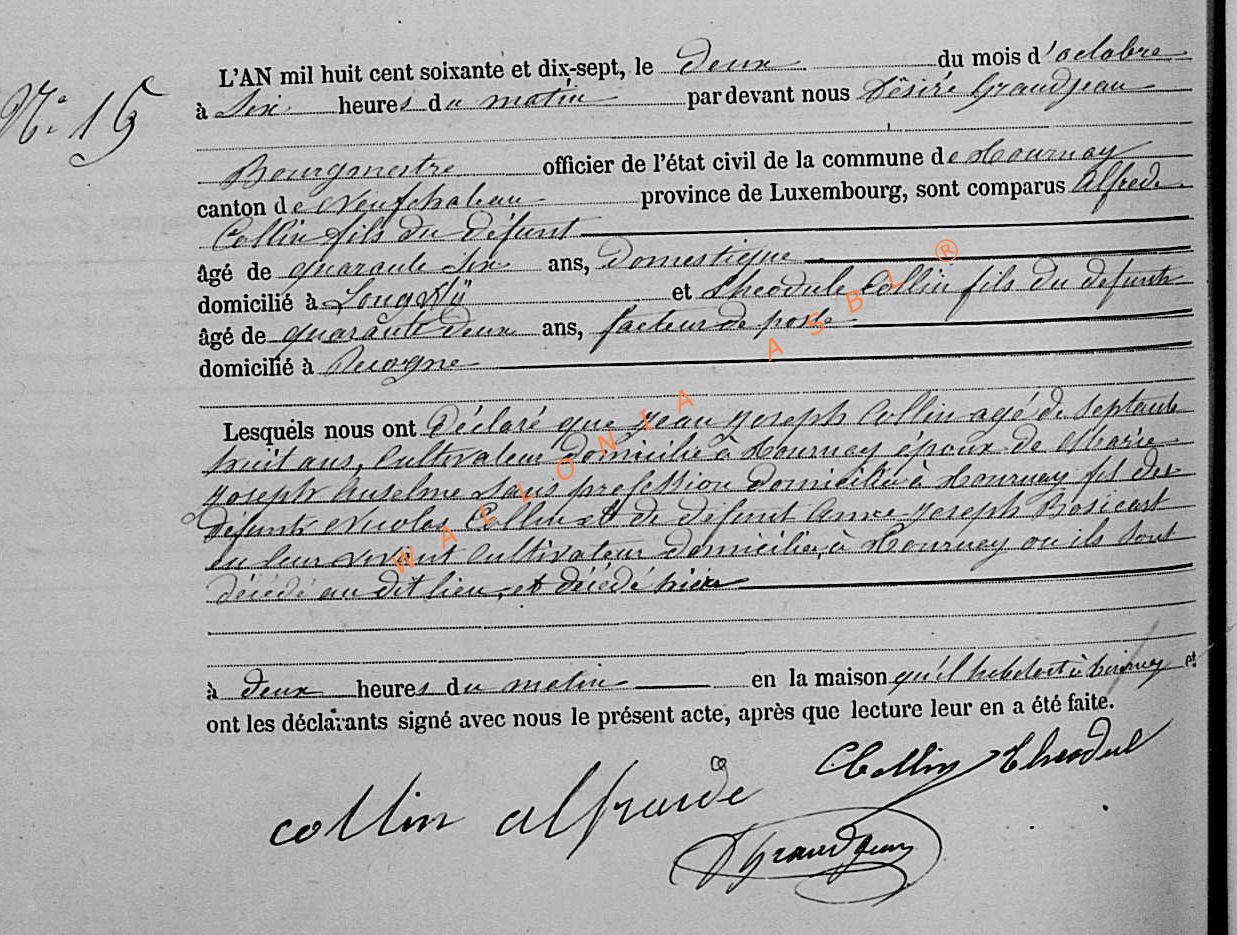 N° 15
L'AN mil huit cent soixante et dix-sept, le deux du mois d'octobre
à six heures du matin par devant nous Désiré Grandjean
Bourgmestre officier de l'état civil de la commune de Tournay
canton de Neufchateau province de Luxembourg, sont comparus Alfrede
Collin fils du défunt
âgé de quarante six ans, Domestique
domicilié à Longlly et Theodule Collin fils du defunt
âgé de quarante deux ans, facteur de poste
domicilié à Recogne
Lesquels nous ont Déclaré que Jean Joseph Collin agé de septante
huit ans, Cultivateur domicilié à Tournay époux de Marie
Joseph Anselme sans profession domiciliée à Tournay fils des
défunts Nicolas Collin et de défunt Anne Joseph Rosicart
en leur vivant Cultivateur domicilié à Tournay ou ils sont
décédé au dit lieu, et décédé hier
à deux heures du matin en la maison qu'il habitait à Tournay et
ont les déclarants signé avec nous le présent acte, après que lecture leur en a été faite.
collin alfrede
Collin Theodul
D Grandjean
WALLONIA ASBL ®